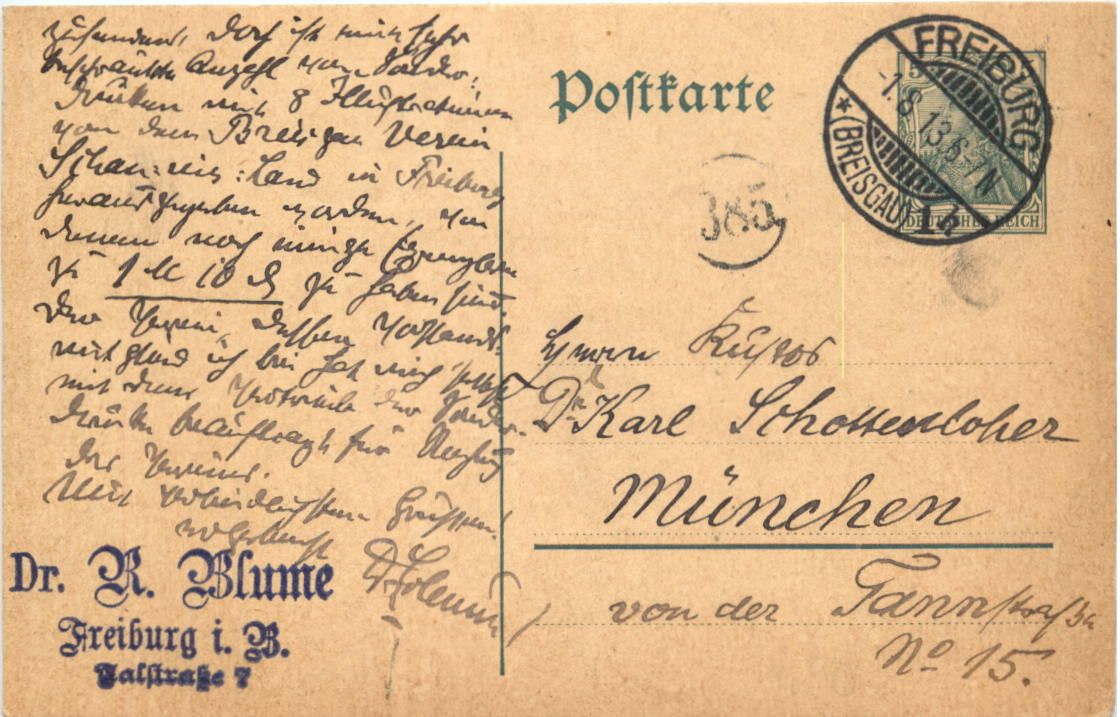 zusenden, doch ist eine sehr
beschränkte Anzahl von Sonder-
drucken mit 8 Illustrationen
von dem Breisgau Verein
Schau-ins-Land in Freiburg
herausgegeben worden, von
denen noch einige Exemplare
zu 1 M 10 ₰ zu haben sind.
Der Verein, dessen Vorstands-
mitglied ich bin hat mich selbst
mit dem Vertriebe der Sonder-
drucke beauftragt für Rechnung
des Vereins.
Mit verbindlichsten Grüssen!
ergebenst
Dr. Blume
Dr. R. Blume
Freiburg i. B.
Talstraße 7
Postkarte
FREIBURG
1.8.13.6-7N
*(BREISGAU)
DEUTSCHES REICH
5
385
Herrn Kustos
Dr. Karl Schottenloher
München
von der Tannstraße
No 15.